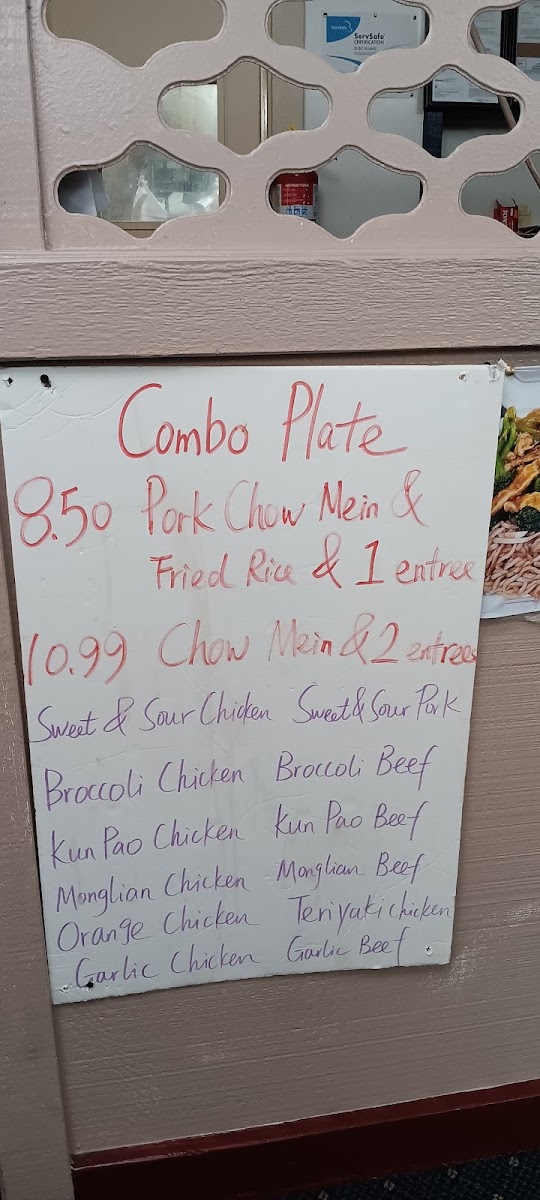 ServSafe
CERTIFICATION
Combo Plate
8.50 Pork Chow Mein &
Fried Rice & 1 entree
10.99 Chow Mein & 2 entrees
Sweet & Sour Chicken Sweet & Sour Pork
Broccoli Chicken Broccoli Beef
Kun Pao Chicken Kun Pao Beef
Monglian Chicken Monglian Beef
Orange Chicken Teriyaki chicken
Garlic Chicken Garlic Beef